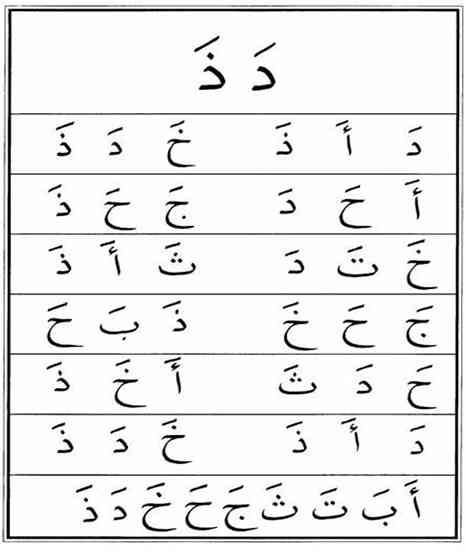 دَ ذَ
دَ أَ ذَ خَ دَ ذَ
أَ حَ دَ جَ حَ ذَ
خَ تَ دَ ثَ أَ ذَ
جَ حَ خَ ذَ بَ حَ
حَ دَ ثَ أَ خَ ذَ
دَ أَ ذَ خَ دَ ذَ
أَ بَ تَ ثَ جَ حَ خَ دَ ذَ